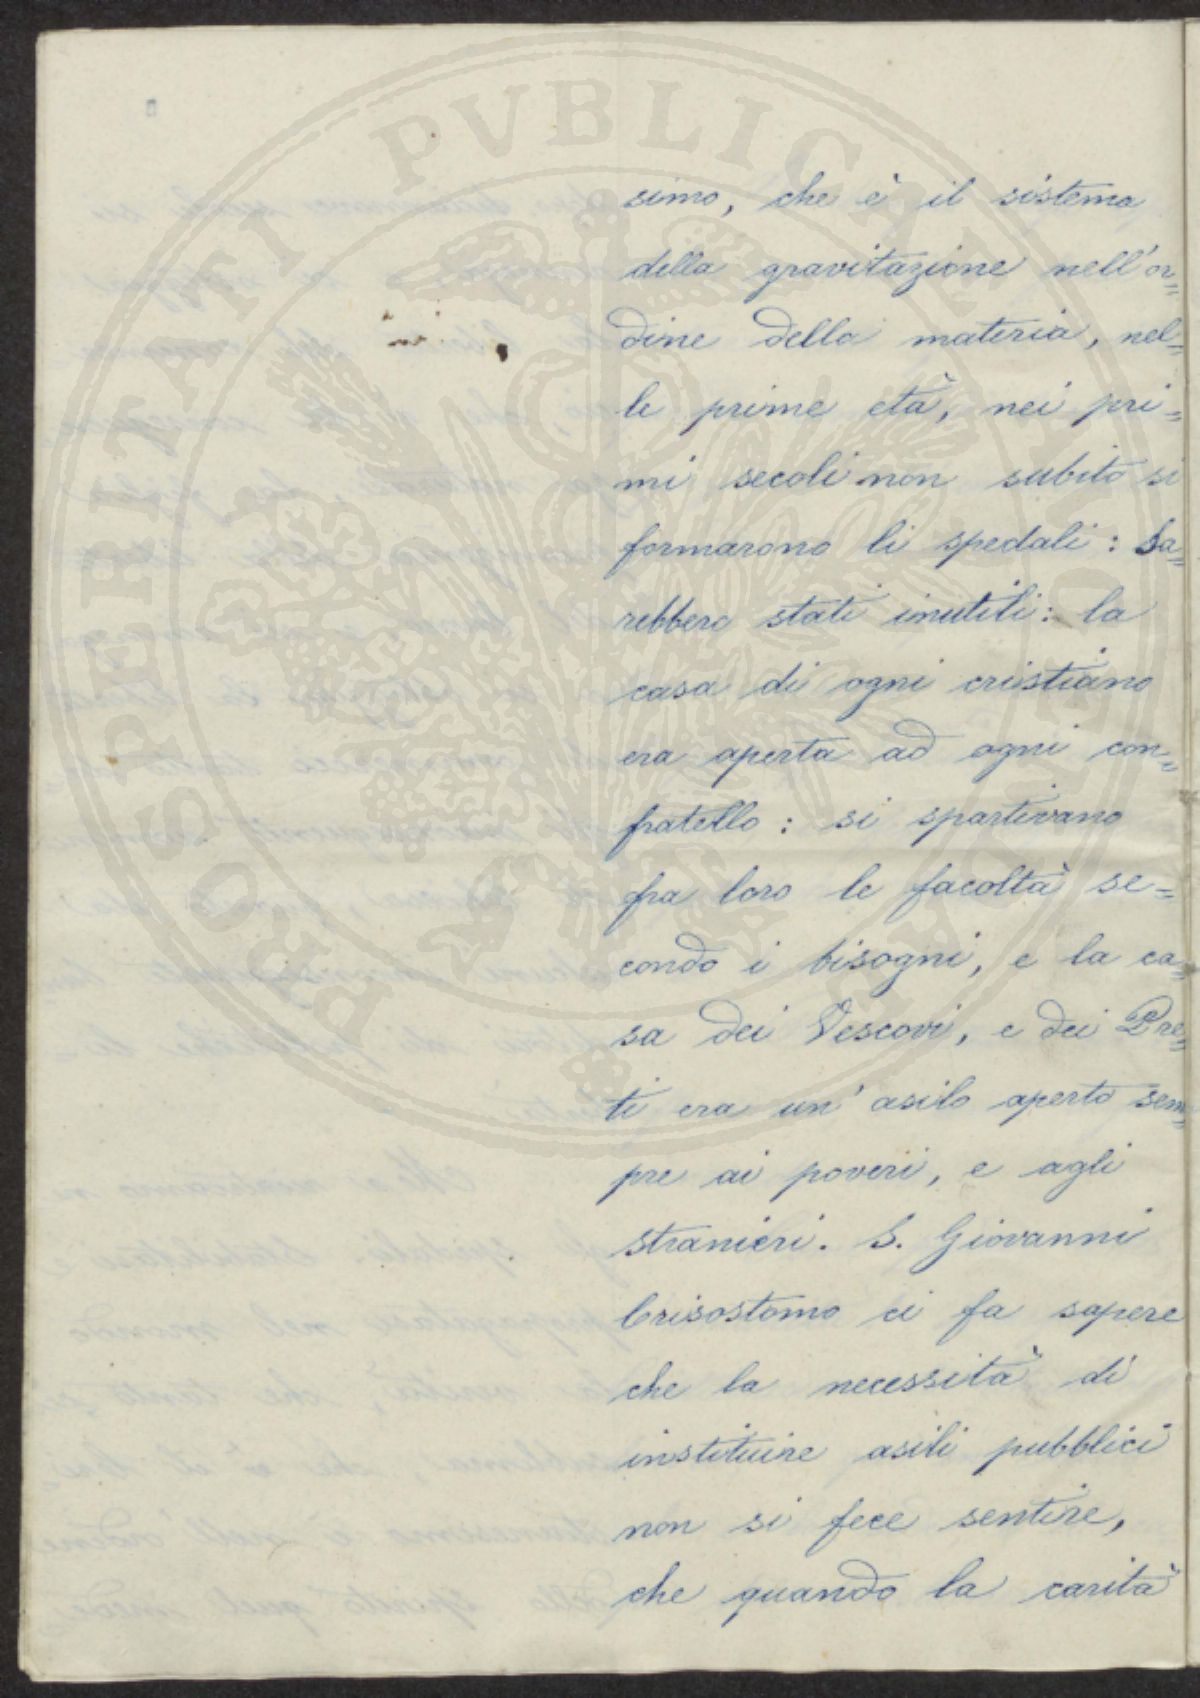 PROSPERITATI PVBLICAE
simo, che è il sistema
della gravitazione nell'or=
dine della materia, nel=
le prime età, nei pri=
mi secoli non subito si
formarono li spedali: Sa=
rebbero stati inutili: la
casa di ogni cristiano
era aperta ad ogni con=
fratello: si spartivano
fra loro le facoltà se=
condo i bisogni, e la ca=
sa dei Vescovi, e dei Pre=
ti era un' asilo aperto sem=
pre ai poveri, e agli
stranieri. S. Giovanni
Crisostomo ci fa sapere
che la necessità di
instituire asili pubblici
non si fece sentire,
che quando la carità